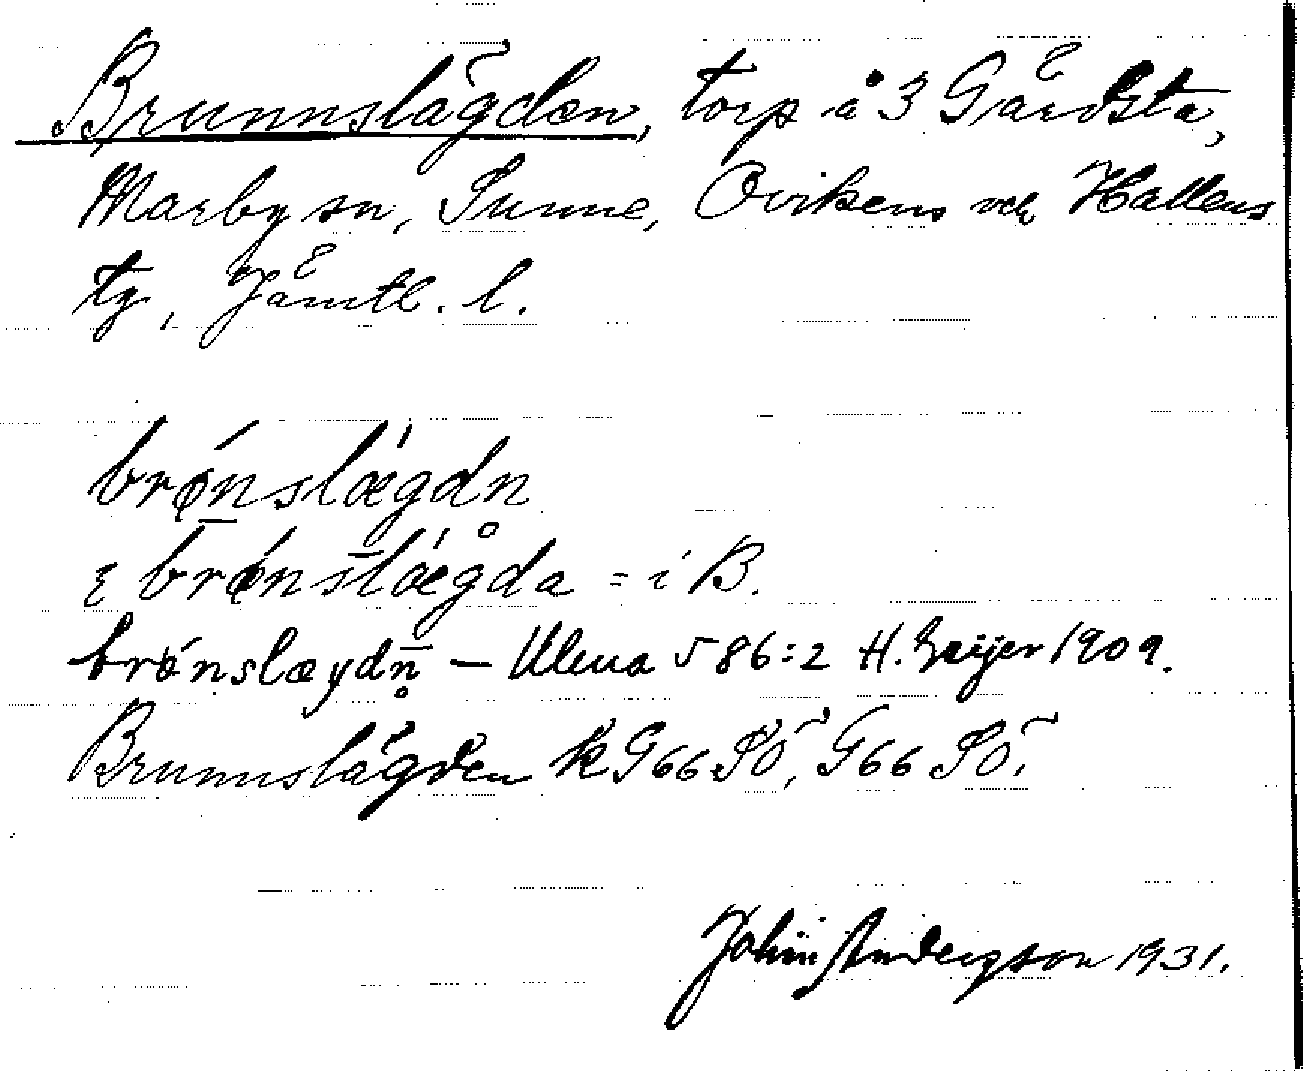 Brunnslägden, torp å 3 Gärdsta,
Marby sn, Sunne, Ovikens och Hallens
tg, Jämtl. l.
brǿnslǽgdn
ę brǿnslǽgda = i B.
brǿnslæydn̥ — Ulma 586:2 H. Geijer 1909.
Brunnslägden kG66SÖ, G66SÖ.
John Andersson 1931.